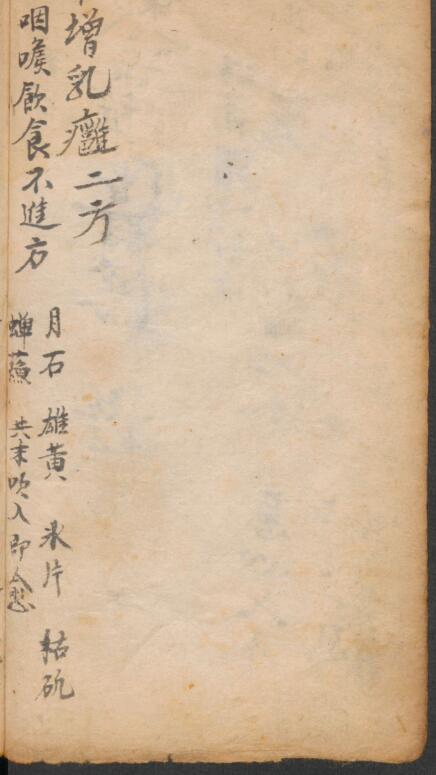 增乳癰二方
咽喉飲食不進方
月石 雄黃 氷片 枯矾
蟬蘓 共末吹入即愈